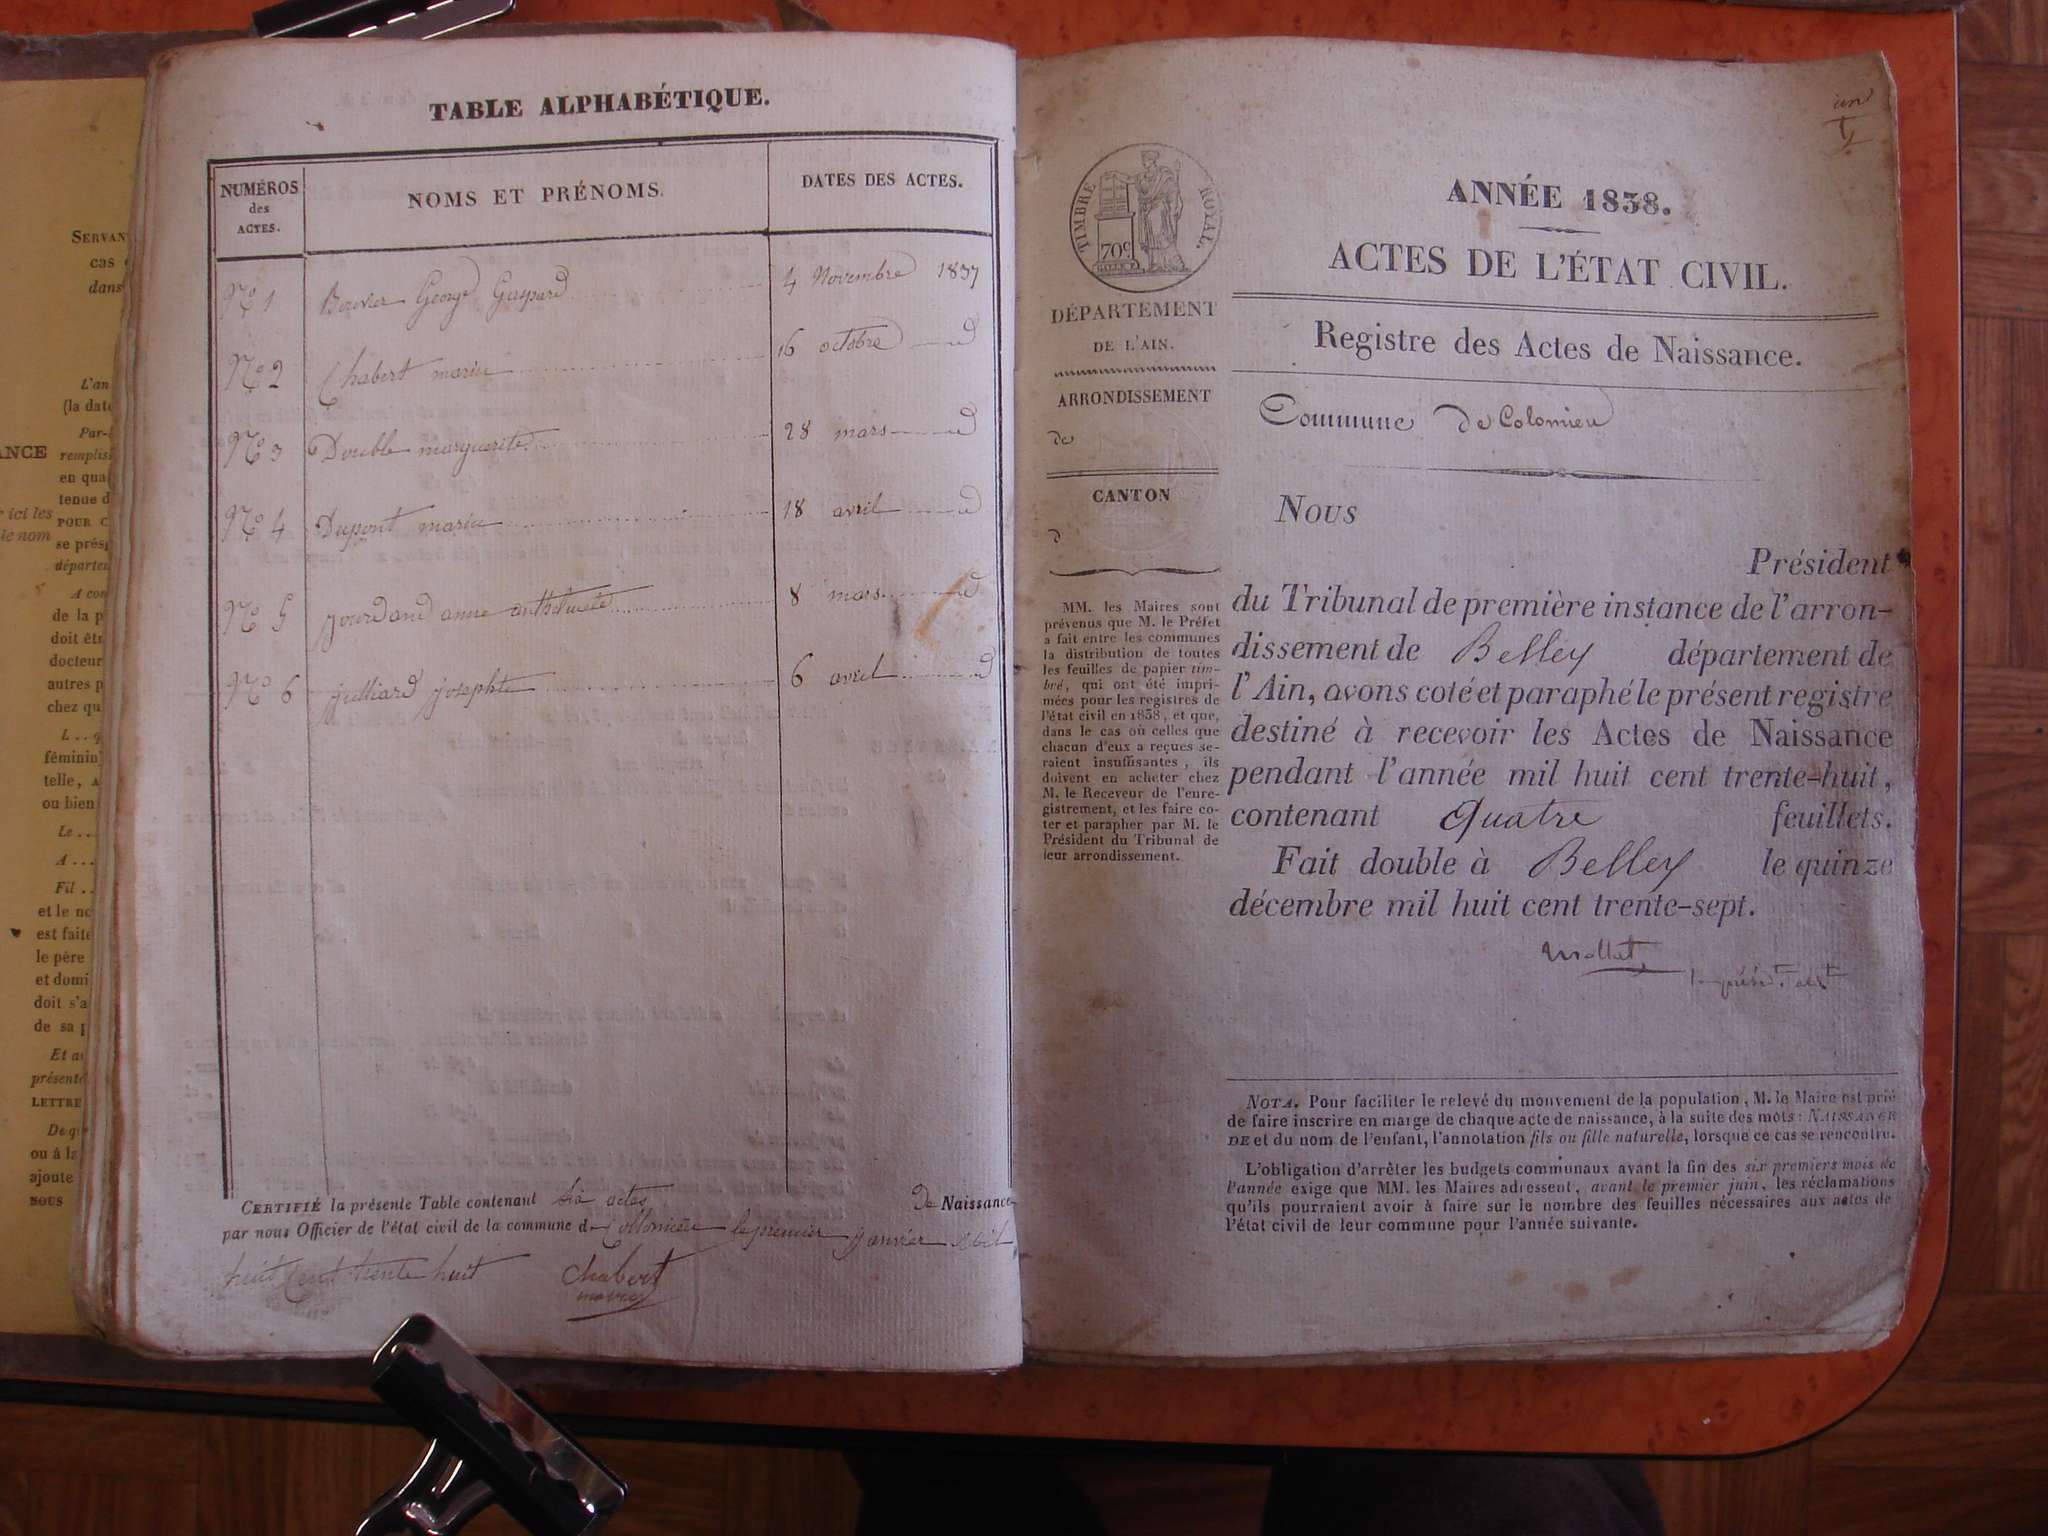 SERVAN
cas
dans
L'an
(la date
Par-
ANCE
remplis
en qua
tenue d
ici les
POUR C
le nom
se prés
départe
A con
de la p
doit êtr
docteur
autres p
chez qu
L . . q
féminin
telle, A
ou bien
Le . . .
A . . .
Fil . .
et le no
est faite
le père
et domi
doit s'a
de sa p
Et a
présenté
LETTRE
De q
ou à la
ajoute
NOUS
TABLE ALPHABÉTIQUE.
NUMÉROS
des
ACTES.
NOMS ET PRÉNOMS.
DATES DES ACTES.
No 1 Bouvier George Gaspard 4 Novembre 1837
No 2 Chabert marie 16 octobre d
No 3 Double marguerite 28 mars d
No 4 Dupont marie 18 avril d
No 5 jourdand anne anthelmete 8 mars d
No 6 julliard josephte 6 avril d
CERTIFIÉ la présente Table contenant six actes de Naissance
par nous Officier de l'état civil de la commune de Collomieu le premier janvier mil
huit cent trente huit
chabert
maire
un
ANNÉE 1838.
ACTES DE L'ÉTAT CIVIL.
Registre des Actes de Naissance.
TIMBRE ROYAL.
70c
DÉPARTEMENT
DE L'AIN.
ARRONDISSEMENT
de
CANTON
d
MM. les Maires sont
prévenus que M. le Préfet
a fait entre les communes
la distribution de toutes
les feuilles de papier tim-
bré, qui ont été impri-
mées pour les registres de
l'état civil en 1838, et que,
dans le cas où celles que
chacun d'eux a reçues se-
raient insuffisantes, ils
doivent en acheter chez
M. le Receveur de l'enre-
gistrement, et les faire co-
ter et parapher par M. le
Président du Tribunal de
leur arrondissement.
Commune de Colomieu
Nous
Président
du Tribunal de première instance de l'arron-
dissement de Belley département de
l'Ain, avons coté et paraphé le présent registre
destiné à recevoir les Actes de Naissance
pendant l'année mil huit cent trente-huit,
contenant quatre feuillets.
Fait double à Belley le quinze
décembre mil huit cent trente-sept.
Mollet
NOTA. Pour faciliter le relevé du mouvement de la population, M. le Maire est prié
de faire inscrire en marge de chaque acte de naissance, à la suite des mots : NAISSANCE
DE et du nom de l'enfant, l'annotation fils ou fille naturelle, lorsque ce cas se rencontre.
L'obligation d'arrêter les budgets communaux avant la fin des six premiers mois de
l'année exige que MM. les Maires adressent, avant le premier juin, les réclamations
qu'ils pourraient avoir à faire sur le nombre des feuilles nécessaires aux actes de
l'état civil de leur commune pour l'année suivante.